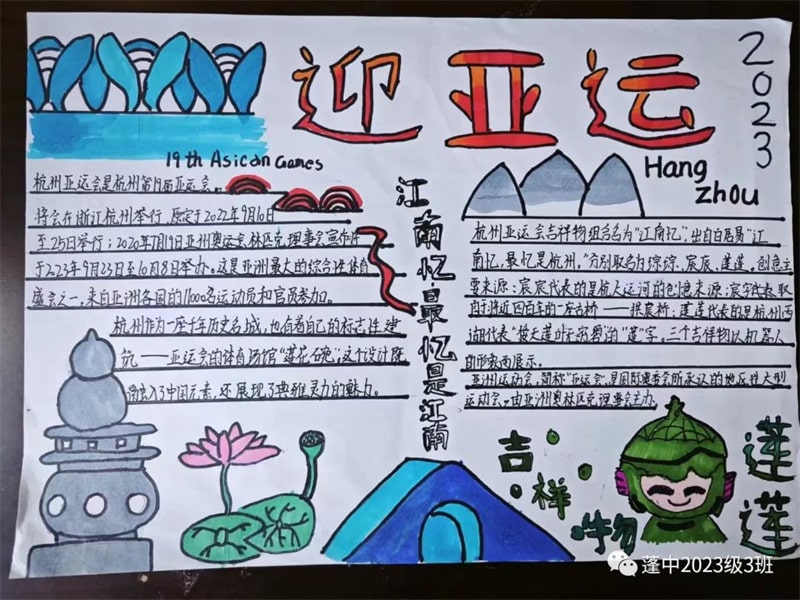 迎亚运
2023
19th Asican Games
Hang
zhou
杭州亚运会是杭州第19届亚运会。
将会在浙江杭州举行 原定于2022年9月10日
至25日举行；2020年7月9日亚洲奥运会林匹克理事会宣布将
于2023年9月23日至10月8日举办。这是亚洲最大的综合性体育
盛会之一，来自亚洲各国的11000名运动员和官员参加。
杭州作为一座千年历史名城，也有着自己的标志性建
筑——亚运会的体育场馆“莲花碗”，这个设计既
融入了中国元素，还展现了典雅灵力的魅力。
江南忆最忆是江南
杭州亚运会吉祥物组合名为“江南忆”，出自白居易“江
南忆，最忆是杭州。”分别取名为琮琮、宸宸、莲莲。创意主
要来源：宸宸代表的是杭大运河的创意来源；宸宇代表取
自于将近四百年的一座古桥——拱宸桥，莲莲代表的是杭州西
湖代表“接天莲叶无穷碧”的“莲”字，三个吉祥物以机器人
的形表面展示。
亚洲运动会，简称“亚运会”，是国际奥委会所承认的地区性大型
运动会。由亚洲奥林匹克理事会主办
吉祥物
莲莲
蓬中2023级3班